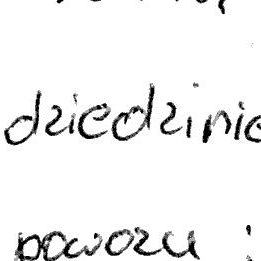 dziedzinie
powozu :